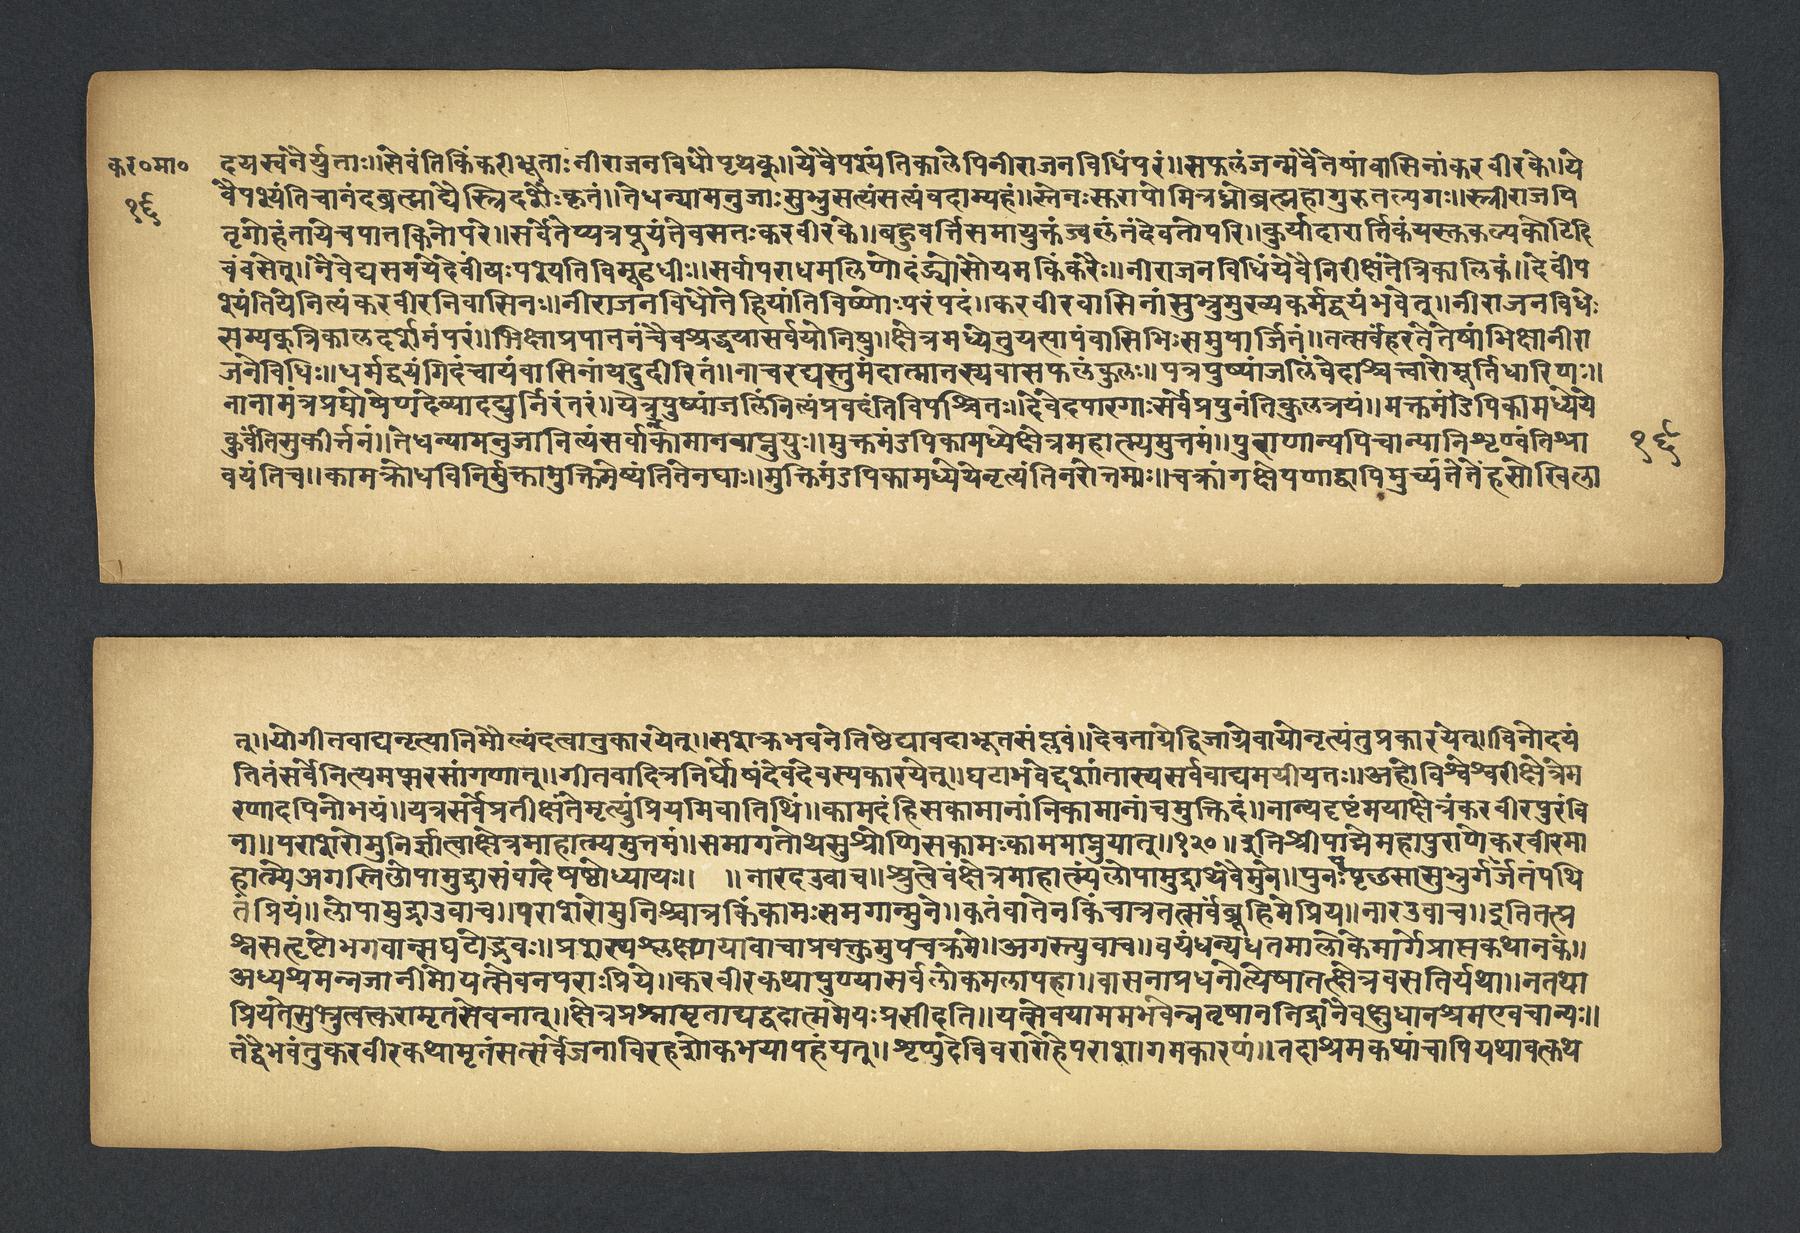 कर०मा०
१६
दयस्वनैर्युताः।।सेवंतिकिंकरीभूताःनीराजनविधौपृथक्।।येवैपश्यंतिकालेपिनीराजनविधिंपरं।।सफलंजन्मवैतेषांवासिनांकरवीरके।।ये
वैपश्यंतिचानंदब्रह्माद्यैस्त्रिदशैःकृतं।।तेधन्यामनुजाःसुभ्रुसत्यंसत्यंवदाम्यहं।।स्तेनःसुरापोमित्रध्रोब्रह्महागुरुतल्पगः।।स्त्रीराजपि
तृगोहंतायेचपातकिनोपरे।।सर्वेतेप्यत्रपूयंतेवसतःकरवीरके।।बहुवर्त्तिसमायुक्तंज्वलंतंदेवतोपरि।।कुर्यादारार्त्तिकंयस्तुकल्पकोटिदि
वंवसेत्।।नैवेद्यसमयेदेवींयःपश्यतिविमूढधीः।।सर्वापराधमलिणोदंड्योसौयमकिंकरैः।।नीराजनविधिंयेवैनिरीक्षंतेत्रिकालिकं।।देवींप
श्यंतियेनित्यंकरवीरनिवासिनः।।नीराजनविधौतेहियांतिविष्णोःपरंपदं।।करवीरवासिनांसुभ्रुमुख्यकर्मद्वयंभवेत्।।नीराजनविधेः
सम्यक्त्रिकालदर्शनंपरं।।भिक्षाप्रपातनंचैवश्रद्धयासर्वयोनिषु।।क्षेत्रमध्येतुयत्पापंवासिभिःसमुपार्जितं।।तत्सर्वंहरतेतेषांभिक्षानीरा
जनेविधिः।।धर्मद्वयंगिदंचायंवासिनांयदुदीरितं।।नाचरद्यस्तुमंदात्मातस्यवासफलंकुतः।।पत्रपुष्पांजलिंवेदाश्चत्वारोमूर्तिधारिणः।।
नानामंत्रप्रघोषेणदेव्यादद्युर्निरंतरं।।यैत्रपुष्पांजलिंनित्यंप्रवदंतिविपश्चितः।।देवेदपारगाःसर्वेप्रपुनंतिकुलत्रयं।।मक्तमंडपिकामध्येये
कुर्वंतिसुकीर्त्तनं।।तेधन्यामनुजानित्यंसर्वान्कामानवाप्नुयुः।।मुक्तमंडपिकामध्येक्षेत्रमहात्म्यमुत्तमं।।पुराणान्यपिचान्यानिशृण्वंतिश्रा
वयंतिच।।कामक्रोधविनिर्मुक्तामुक्तिमेष्यंतितेनघाः।।मुक्तिमंडपिकामध्येयेनृत्यंतिनरोत्तमाः।।चक्रांगक्षेपणाद्वापिमुच्यंतेतेंहसोखिला
१६
त्।।योगीतवाद्यनृत्यानिमौल्यंदत्वानुकारयेत्।।सशक्रभवनेतिष्ठेद्यावदाभूतसंप्लवं।।देवताग्रेद्विजाग्रेवायोनृत्यंतुप्रकारयेत्।।विनोदयं
तितंसर्वेनित्यमप्सरसांगणात्।।गीतवादित्रनिर्घोषंदेवंदेवस्यकारयेत्।।घटाभवेद्दशांतास्यसर्ववाद्यमयीयतः।।अहोविश्वेश्वरीक्षेत्रेम
रणादपिनोभयं।।यत्रसर्वेप्रतीक्षंतेमृत्युंप्रियमिवातिथिं।।कामदंहिसकामानांनिकामानांचमुक्तिदं।।नान्यदृष्टंमयाक्षेत्रंकरवीरपुरंवि
ना।।पराशरोमुनिर्ज्ञात्वाक्षेत्रमाहात्म्यमुत्तमं।।समागतोथसुश्रोणिसकामःकाममाप्नुयात्।।१२०।।इतिश्रीपाद्मेमहापुराणेकरवीरमा
हात्म्येअगस्तिलोपामुद्रासंवादेषष्ठोध्यायः।। ।।नारदउवाच।।श्रुत्वैवंक्षेत्रमाहात्म्यंलोपामुद्राथवैमुने।।पुनःपप्रृछसासुभ्रुर्गर्जंतंपथि
तंप्रियं।।लोपामुद्राउवाच।।पराशरोमुनिश्चात्रकिंकामःसमगान्मुने।।कृतंवातेनकिंचात्रतत्सर्वंब्रूहिमेप्रिय।।नारउवाच।।इतितत्प्र
श्नसत्दृष्टोभगवान्सघटोद्भवः।।प्रशस्यश्लक्ष्णयावाचाप्रवक्तुमुपचक्रमे।।अगस्त्युवाच।।वयंधन्यधतमालोकेमार्गेत्रासकथानकं।।
अध्वश्रमन्नजानीमोयत्सेवनपराःप्रिये।।करवीरकथापुण्यासर्वलोकमलापहा।।वासनाप्रधनोत्येषातत्क्षेत्रवसतिर्यथा।।नतथा
प्रियतेसुभ्रुत्वत्करामृतसेवनात्।।क्षेत्रप्रश्नामृताद्यद्वदात्ममेयःप्रसीदति।।यत्सेवयाममभवेन्नतृषाननिद्रानैवक्षुधानश्रमएवचान्यः।।
तंद्वैभवंतुकरवीरकथामृतंसत्सर्वेजनाविरहशोकभयापहंयत्।।शृणुदेविवरारोहेपराशरागमकारणं।।तदाश्रमकथांचापियथावत्कथ